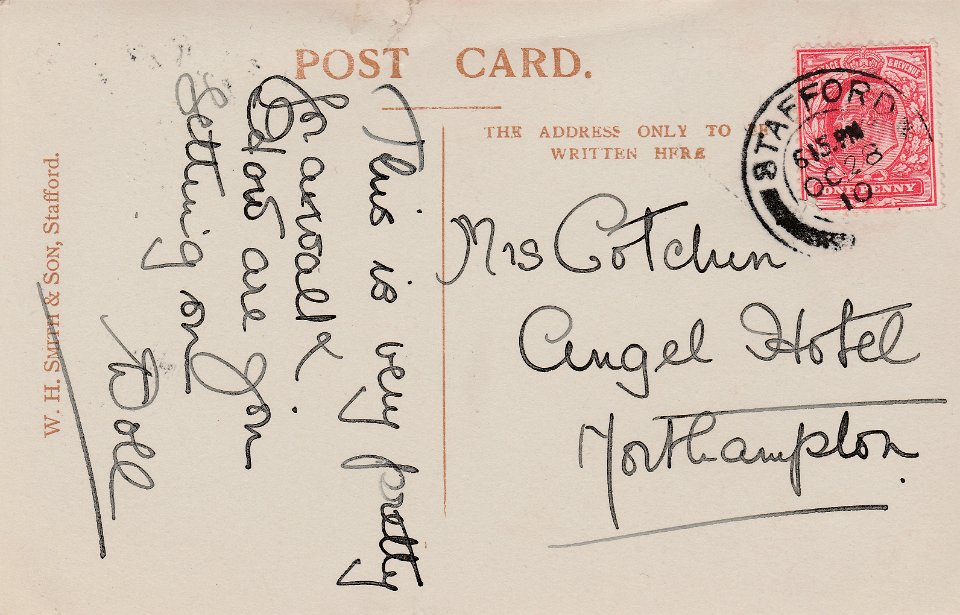 POST CARD.
THE ADDRESS ONLY TO BE
WRITTEN HERE
STAFFORD
615.PM
OC 28
10
POSTAGE & REVENUE
ONE PENNY
W. H. SMITH & SON, Stafford.
This is very pretty
for a walk.
How are you
getting on
Doll
Mrs Cotchin
Angel Hotel
Northampton.